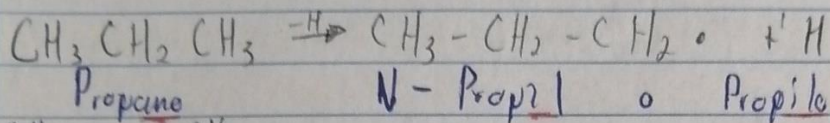 CH₃ CH₂ CH₃ —H→ CH₃ - CH₂ - CH₂ • + H
Propano N - Propil o Propilo